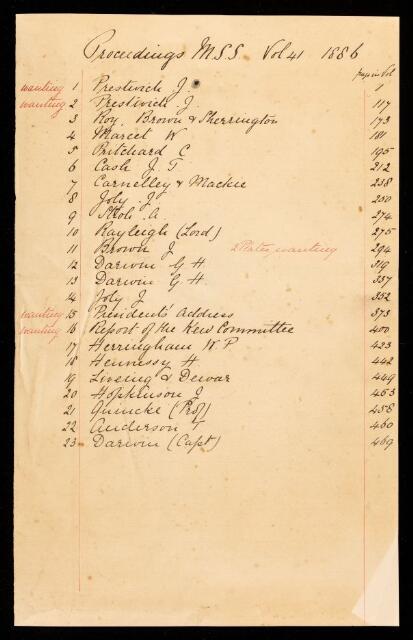 Proceedings M.S.S. Vol 41 1886
page in Vol
wanting 1 Prestwich J. 1
wanting 2 Prestwich. J. 117
3 Roy, Brown & Sherrington 173
4 Marcet W 181
5 Pritchard C 195
6 Cash J. T. 212
7 Carnelley & Mackie 238
8 Joly. J. 250
9 Stroh A. 274
10 Rayleigh (Lord) 275
11 Brown J 2 Plates, wanting 294
12 Darwin G H 319
13 Darwin G. H. 337
14 Joly J 352
wanting 15 President's Address 373
wanting 16 Report of the Kew Committee 400
17 Herringham W. P 423
18 Hennessy H 442
19 Liveing & Dewar 449
20 Hopkinson J 453
21 Quincke (Prof) 458
22 Anderson T 460
23 Darwin (Capt) 469